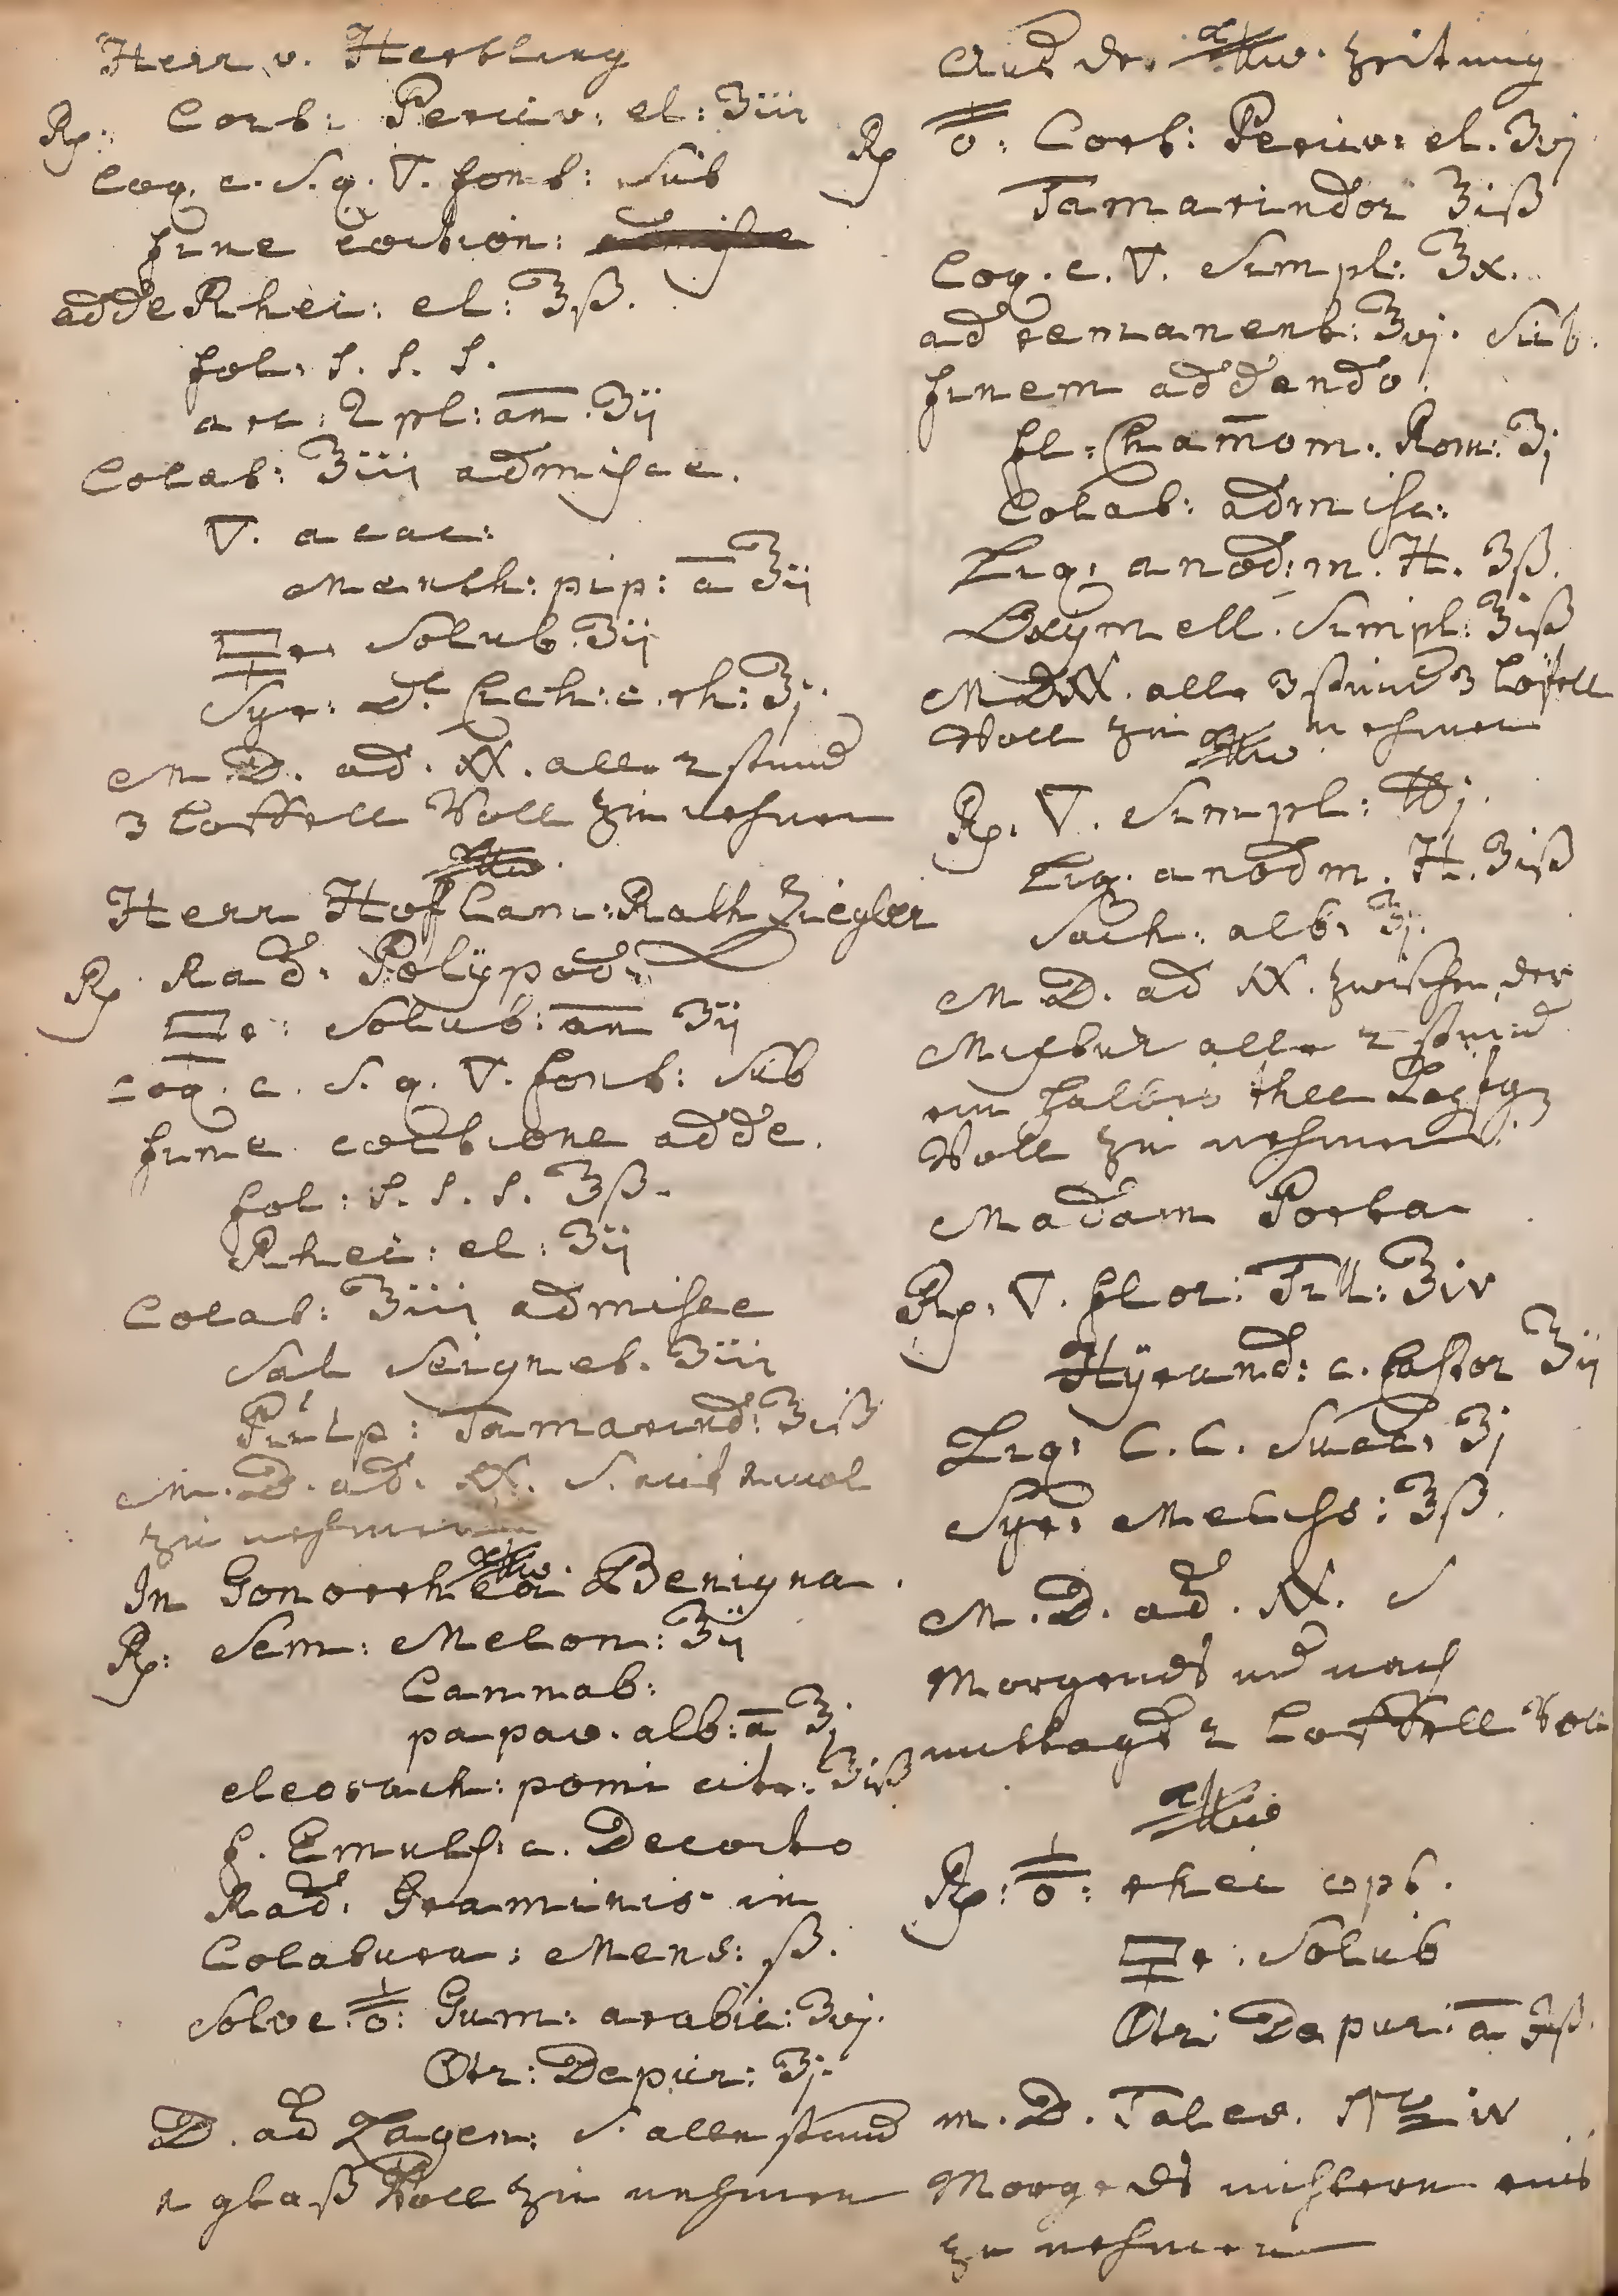 Herr v. Herbling
Rp. Cort: Peruv: el: ʒiii
Coq. c. S. q. ▽. font: Sub
fine coction:
adde Rhei: el: ʒß.
fol: S. S. S.
arc: 2pl: an̄. ʒij
Colat: ℥iii admisce.
▽. acac:
Menth: pip: ā ℥ij
Solub. ʒij
Syr: d. Cich: c. rh: ℥j.
M. D. ad. alle 2 stund
3 Löffell Voll zu nehmen
Herr Hof Cam: Rath Ziegler
Rp Rad: Polÿpod:
Solub: an̄ ʒij
coq. c. S. q. ▽. font: Sub
fine coctione adde.
fol: S. S. S. ℥ß.
Rhei: el: ʒij
Colat: ℥iii admisce
Sal Seignet. ʒiii
Pulp: Tamarind: ℥iß
M. D. ad. S. auf einmol
zu nehmen
In Gonorrhea Benigna.
Rp: Sem: Melon: ʒij
Cannab:
papav. alb: ā ʒj
eleosach: pomi citr: ʒiß
f. Emuls: c. Decocto
Rad. Graminis in
Colatura: Mens: ß.
Solve. Gum: arabic: ʒvj.
Depur: ʒj.
D. ad Lagen: S. alle stund
1 glaß Voll zu nehmen
Aus der Zeitung
Rp Cort: Peruv: el. ʒvj
Tamarindor ℥iß
Coq. c. ▽. Simpl: ℥x.
ad remanent: ℥vj. Sub.
finem addendo.
fl: Cham̄om. Rom: ʒj
Colat: admisc:
Liq: anod: m. H. ʒß.
Oxymell. Simpl: ℥iß
M D alle 3 stund 3 Löfell
Voll zu nehmen
Rp. ▽. Simpl: ℔j.
Liq. anod m. H. ʒiß
Sach: alb: ℥j.
M. D. ad zwischen der
Mixtur alle 2 stund
ein halbes thee
Voll zu nehmen.
Madam Porta
Rp. ▽. flor: Till: ℥iv
Hÿrund: c. Castor ℥ij
Liq: C. C. Succ: ʒj
Syr: Meliss: ℥ß.
M. D. ad. S
Morgends und nach
mittags 2 Löffell Voll
Rp: rhei opt.
Solub
Depur: ā ʒß.
m. D. Tales. No iv
Morgends nichtern eins
zu nehmen